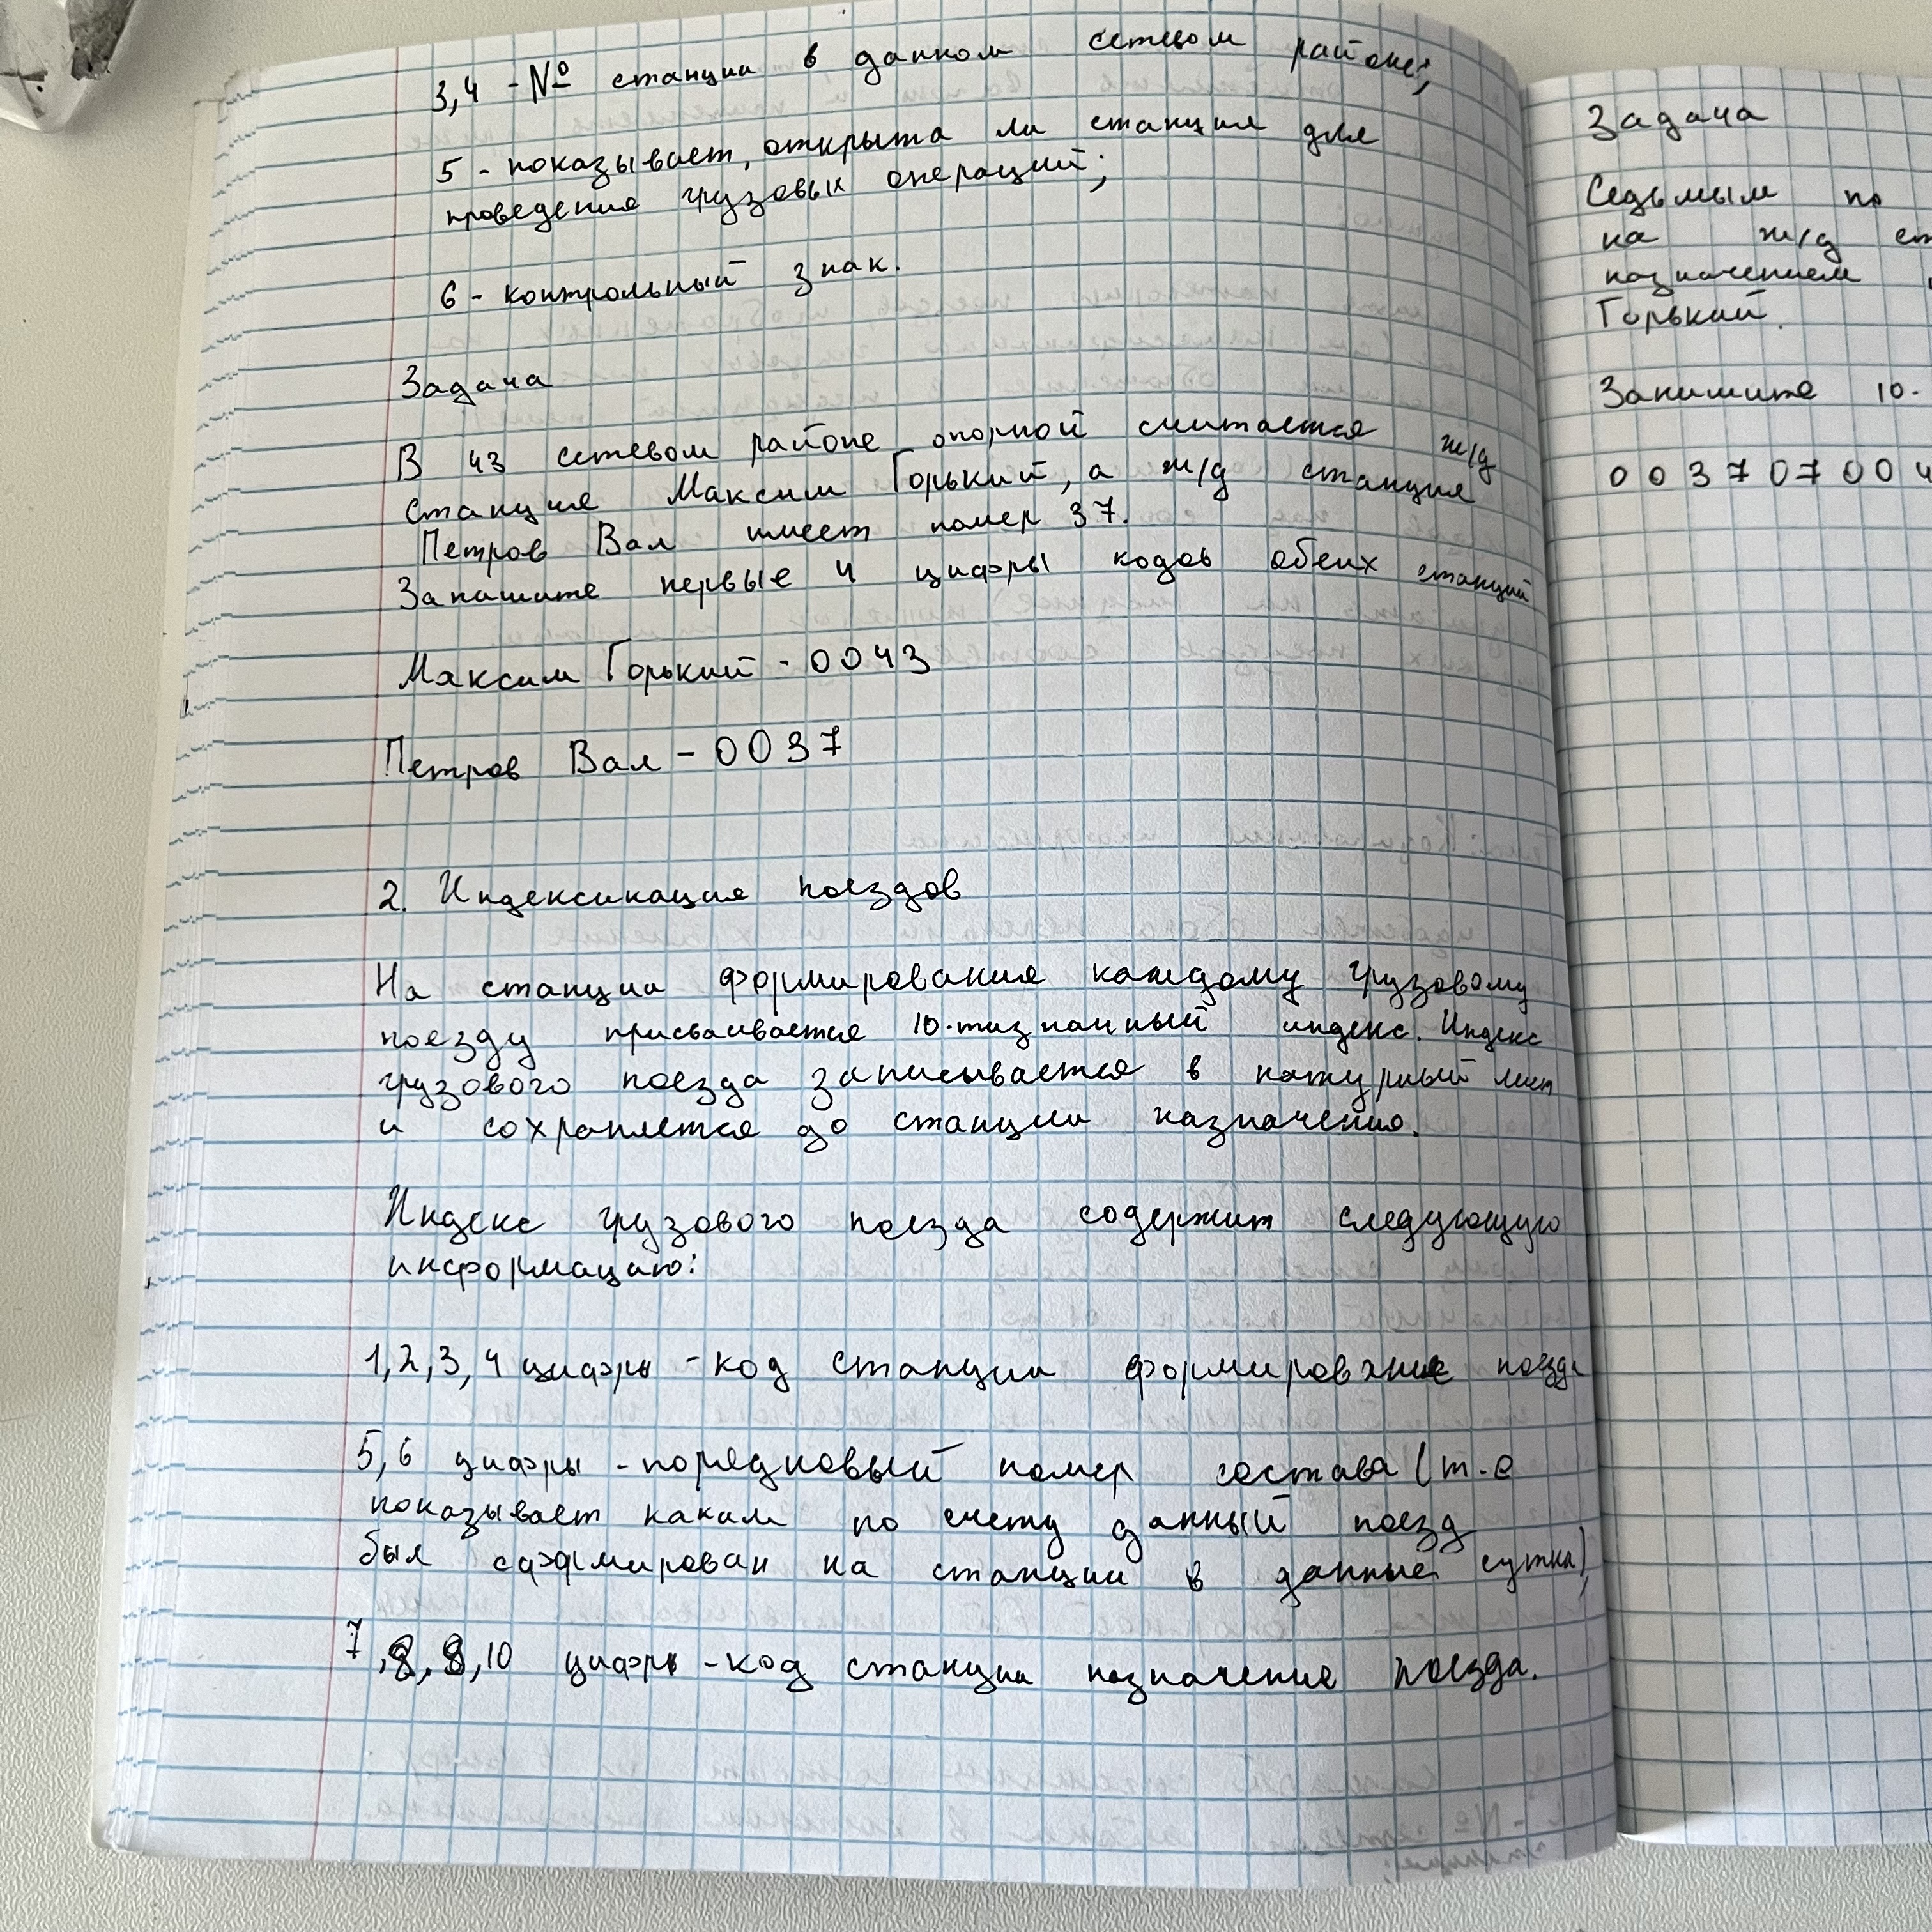 3,4 - № станции в данном сетевом районе;
5 - показывает, открыта ли станция для
проведения грузовых операций;
6 - контрольный знак.
Задача
В 43 сетевом районе опорной считается ж/д
станция Максим Горький, а ж/д станция
Петров Вал имеет номер 37.
Запишите первые 4 цифры кодов обеих станций
Максим Горький - 0043
Петров Вал - 0037
2. Индексикация поездов
На станции формирования каждому грузовому
поезду присваивается 10-тизначный индекс. Индекс
грузового поезда записывается в натурный лист
и сохраняется до станции назначения.
Индекс грузового поезда содержит следующую
информацию:
1,2,3,4 цифры - код станции формирования поезда
5,6 цифры - порядковый номер состава (т.е
показывает каким по счету данный поезд
был сформирован на станции в данные сутки);
7,8,9,10 цифры - код станции назначения поезда.
Задача
Седьмым по
на ж/д ст
назначением
Горький.
Запишите 10-
003707004